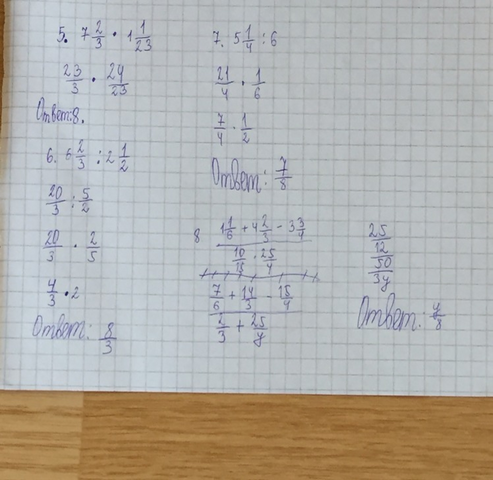 5. 7 2/3 · 1 1/23
23/3 · 24/23
Ответ: 8.
6. 6 2/3 : 2 1/2
20/3 : 5/2
20/3 · 2/5
4/3 · 2
Ответ: 8/3
7. 5 1/4 : 6
21/4 · 1/6
7/4 · 1/2
Ответ: 7/8
8 1 1/6 + 4 2/3 - 3 3/4
10/15 · 25/4
7/6 + 14/3 - 15/4
2/3 + 25/y
25/12
50/3y
Ответ: y/8